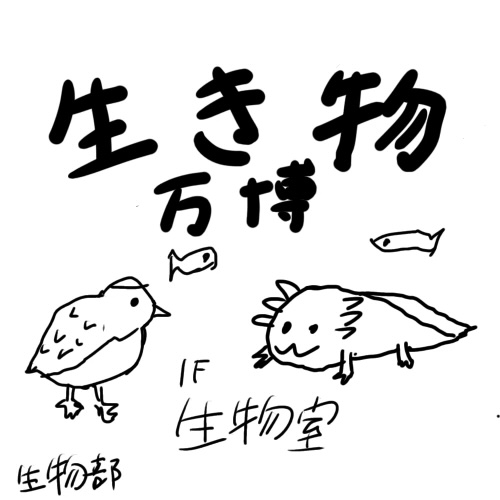 生き物
万博
1F
生物室
生物部